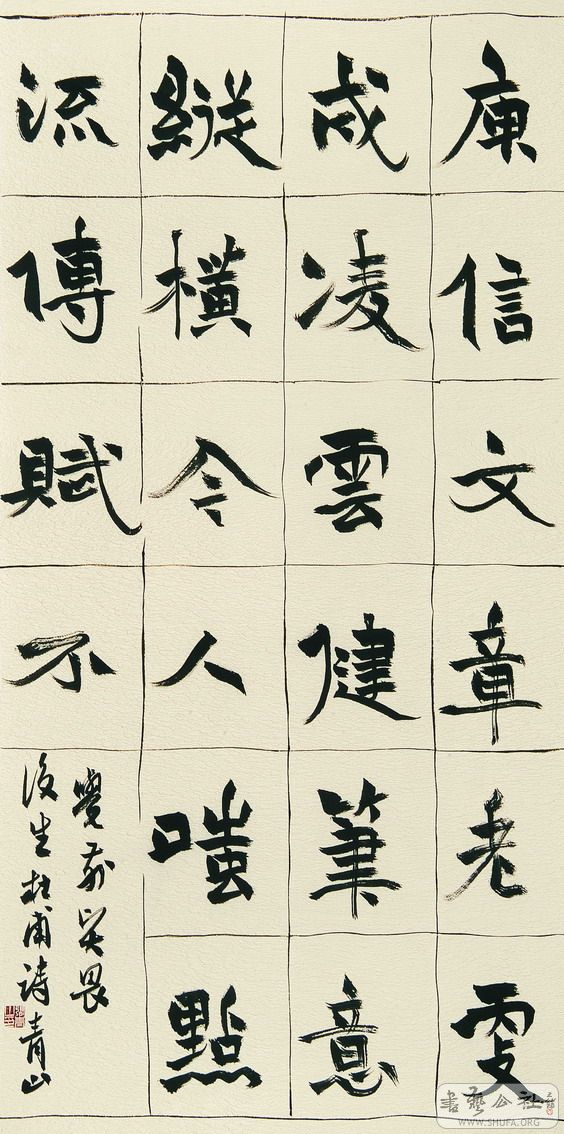 庾信文章老更
成凌雲健筆意
縱橫今人嗤點
流傳賦不
覺前賢畏
後生杜甫詩青山
書藝公社
WWW.SHUFA.ORG